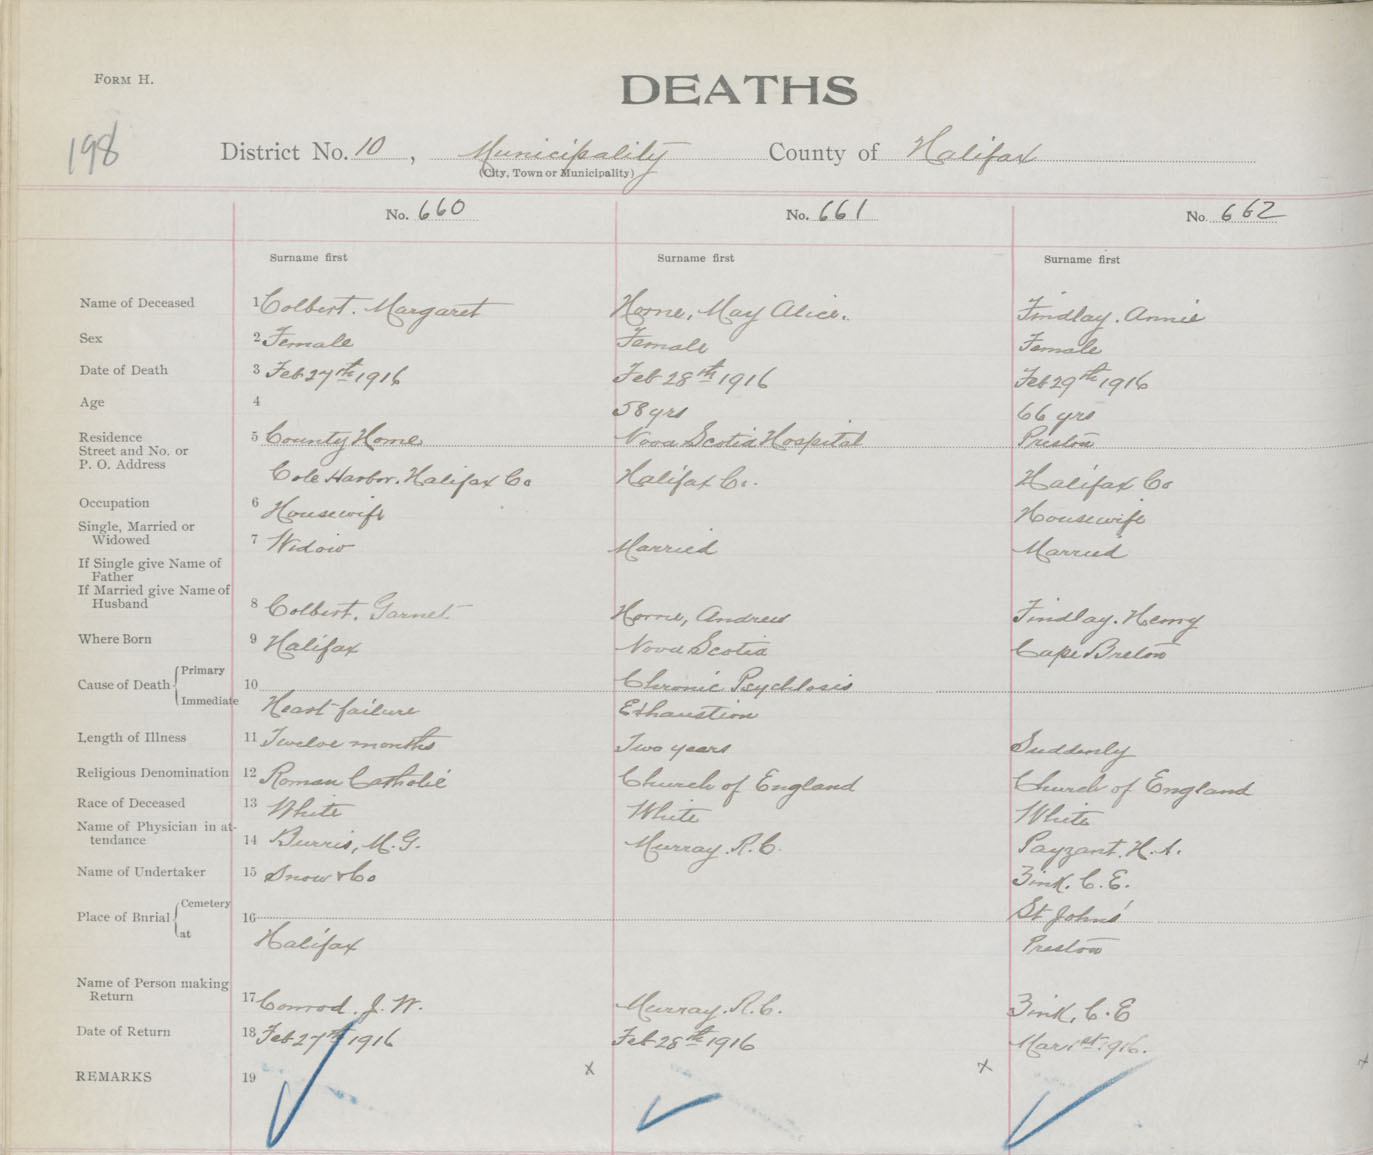 FORM H.
DEATHS
198
District No. 10, Municipality County of Halifax
(City, Town or Municipality)
No. 660 No. 661 No. 662
Surname first Surname first Surname first
Name of Deceased 1 Colbert. Margaret Horne, May Alice. Findlay. Annie
Sex 2 Female Female Female
Date of Death 3 Feb 27th 1916 Feb 28th 1916 Feb 29th 1916
Age 4 58 yrs 66 yrs
Residence 5 County Home Nova Scotia Hospital Preston
Street and No. or
P. O. Address Cole Harbor. Halifax Co Halifax Co. Halifax Co
Occupation 6 Housewife Housewife
Single, Married or
Widowed 7 Widow Married Married
If Single give Name of
Father
If Married give Name of
Husband 8 Colbert. Garnet Horne, Andrew Findlay. Henry
Where Born 9 Halifax Nova Scotia Cape Breton
Cause of Death Primary 10 Chronic Psychosis
Immediate Heart failure Exhaustion
Length of Illness 11 Twelve months Two years Suddenly
Religious Denomination 12 Roman Catholic Church of England Church of England
Race of Deceased 13 White White White
Name of Physician in at-
tendance 14 Burris, M. G. Murray. R. C. Payzant. H. A.
Name of Undertaker 15 Snow & Co Zink. C. E.
Place of Burial Cemetery 16 St Johns'
at Halifax Preston
Name of Person making
Return 17 Conrod. J. W. Murray. R. C. Zink, C. E
Date of Return 18 Feb 27th 1916 Feb 28th 1916 Mar 1st 1916.
REMARKS 19 x x x